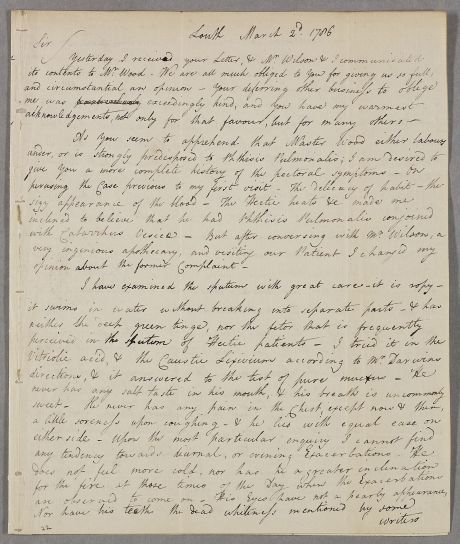 Louth March 2d. 1786
Sir
Yesterday I received your Letter, & Mr. Wilson & I communicated
its contents to Mr. Wood. We are all much obliged to You for giving us so full,
and circumstantial an opinion - Your deferring other business to oblige
me was exceedingly kind, and You have my warmest
acknowledgements, not only for that favour, but for many others -
As You seem to apprehend that Master Wood either labours
under, or is strongly predisposed to Phthisis Pulmonalis; I am desired to
give You a more complete history of the pectoral symptoms - On
perusing the Case previous to my first visit - The delicacy of habit - the
sizy appearance of the blood - The Hectic heats &c made me
inclined to believe that he had Phthisis Pulmonalis conjoined
with Catarrhus Vesicæ - But after conversing with Mr. Wilson, a
very ingenious apothecary, and visiting our Patient I changed my
opinion about the former Complaint -
I have examined the sputum with great care - it is ropy -
it swims in water without breaking into separate parts - & has
neither the deep green tinge, nor the fetor that is frequently
perceived in the sputum of Hectic patients - I tried it in the
Vitriolic acid, & the Caustic Lixivium according to Mr. Darwins
directions, & it answered to the test of pure mucus - He
never has any salt taste in his mouth, & his breath is uncommonly
sweet - He never has any pain in the Chest, except now & then,
a little soreness upon coughing - & he lies with equal ease on
either side - Upon the most particular enquiry I cannot find
any tendency towards diurnal, or evening Exacerbations - He
does not feel more cold, nor has he a greater inclination
for the fire, at those times of the Day when the Exacerbations
are observed to come on - His Eyes have not a pearly appearance,
Nor have his teeth the dead whiteness mentioned by some
writers
22